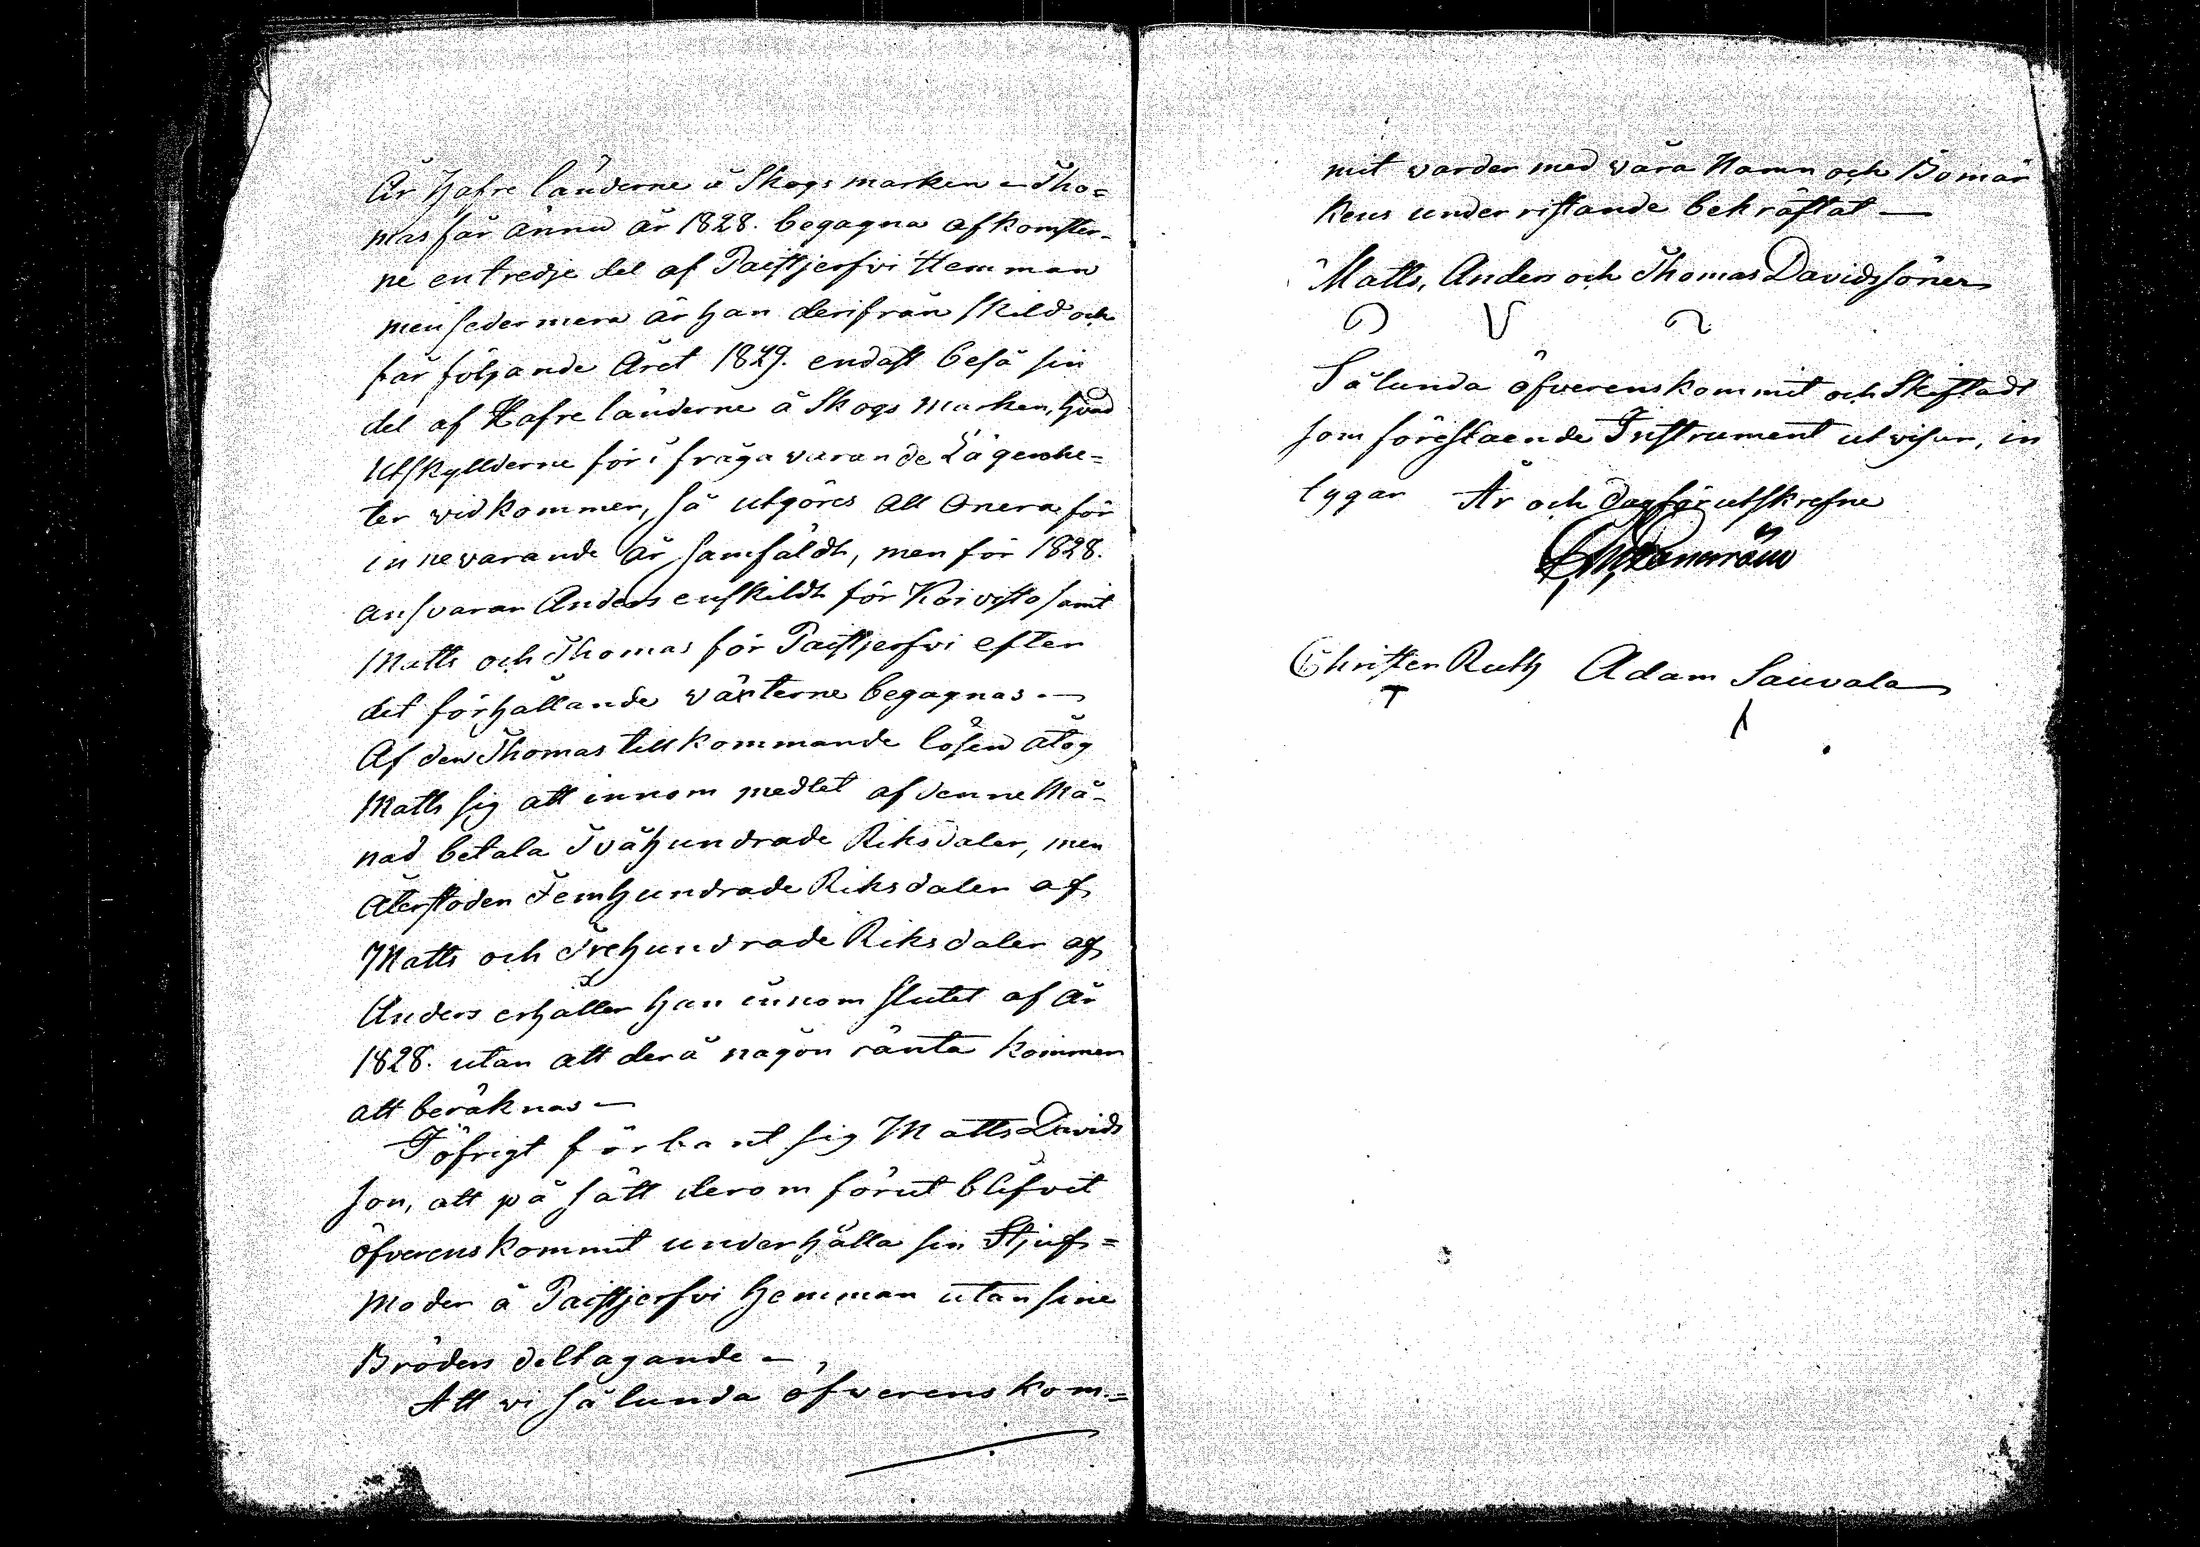 År Hafre länderne å Skogsmarken – Tho=
mas får ännu år 1828. begagna afkomster-
ne en tredje del af Paistjerfvi Hemman
men sedermera är han derifrån skild och
får följande Året 1829. endast beså sin
del af Hafre länderne å Skogs marken, hvad
Utskyllderne för i fråga varande Lägenhe=
ter vidkommer, så utgöres all Onera för
innevarande år samfäldt, men för 1828.
ansvarar Anders enskildt för Koivisto samt
Matts och Thomas för Paistjerfvi efter
det förhållande växterne begagnas. –
Af den Thomas tillkommande lösen åtog
Matts sig att innom medlet af denne Må-
nad betala Tvåhundrade Riksdaler, men
Återstoden Femhundrade Riksdaler af
Matts och Trehundrade Riksdaler af
Anders erhåller han innom slutet af år
1828. utan att derå någon ränta kommer
att beräknas –
I öfrigt förbant sig Matts Davids
son, att på sätt derom förut blifvit
öfverenskommit underhålla sin Stjuf=
moder å Paistjerfvi hemman utan sine
Bröders deltagande –
Att vi sålunda öfverenskom=
mit varder med våra Namn och Bomär
kens under ristande bekräftat –
Matts, Anders och Thomas Davidssöner
Sålunda öfverenskommit och Skiftadt
som förestaende Instrument utvisar, in
tygar År och dag för utskrefne
Christer Ruth Adam Sauvala